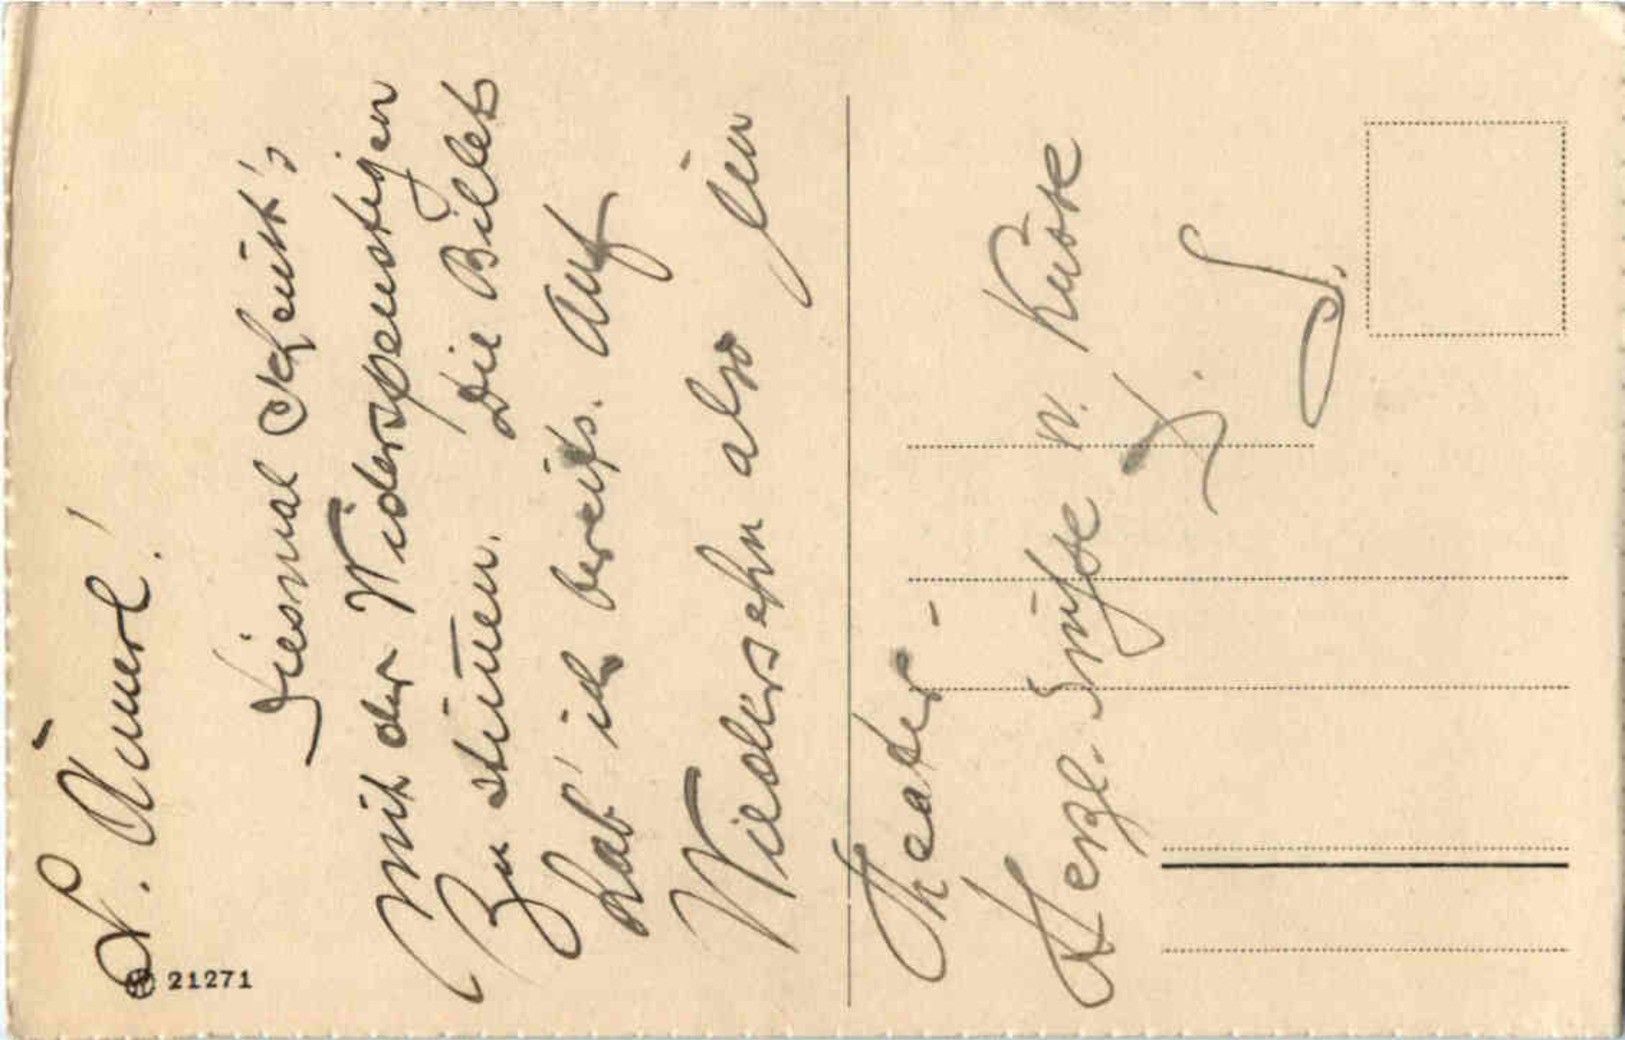 L. Annerl!
Diesmal scheint's
mit der Widerspenstigen
zu stimmen. Die Billets
hab' ich bereits. Auf
Wiedersehn also im
Theater -
Herzl. Grüße u. Küsse
21271